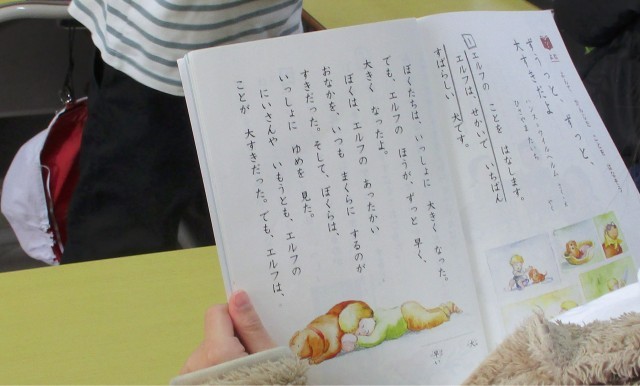 ずうっと、ずっと、
大すきだよ
エルフの ことを はなします。
エルフは、せかいで いちばん
すばらしい 犬です。
ぼくたちは、いっしょに 大きく なった。
でも、エルフの ほうが、ずっと 早く、
大きく なったよ。
ぼくは、エルフの あったかい
おなかを、いつも まくらに するのが
すきだった。そして、ぼくらは、
いっしょに ゆめを 見た。
にいさんや いもうとも、エルフの
ことが 大すきだった。でも、エルフは、
犬